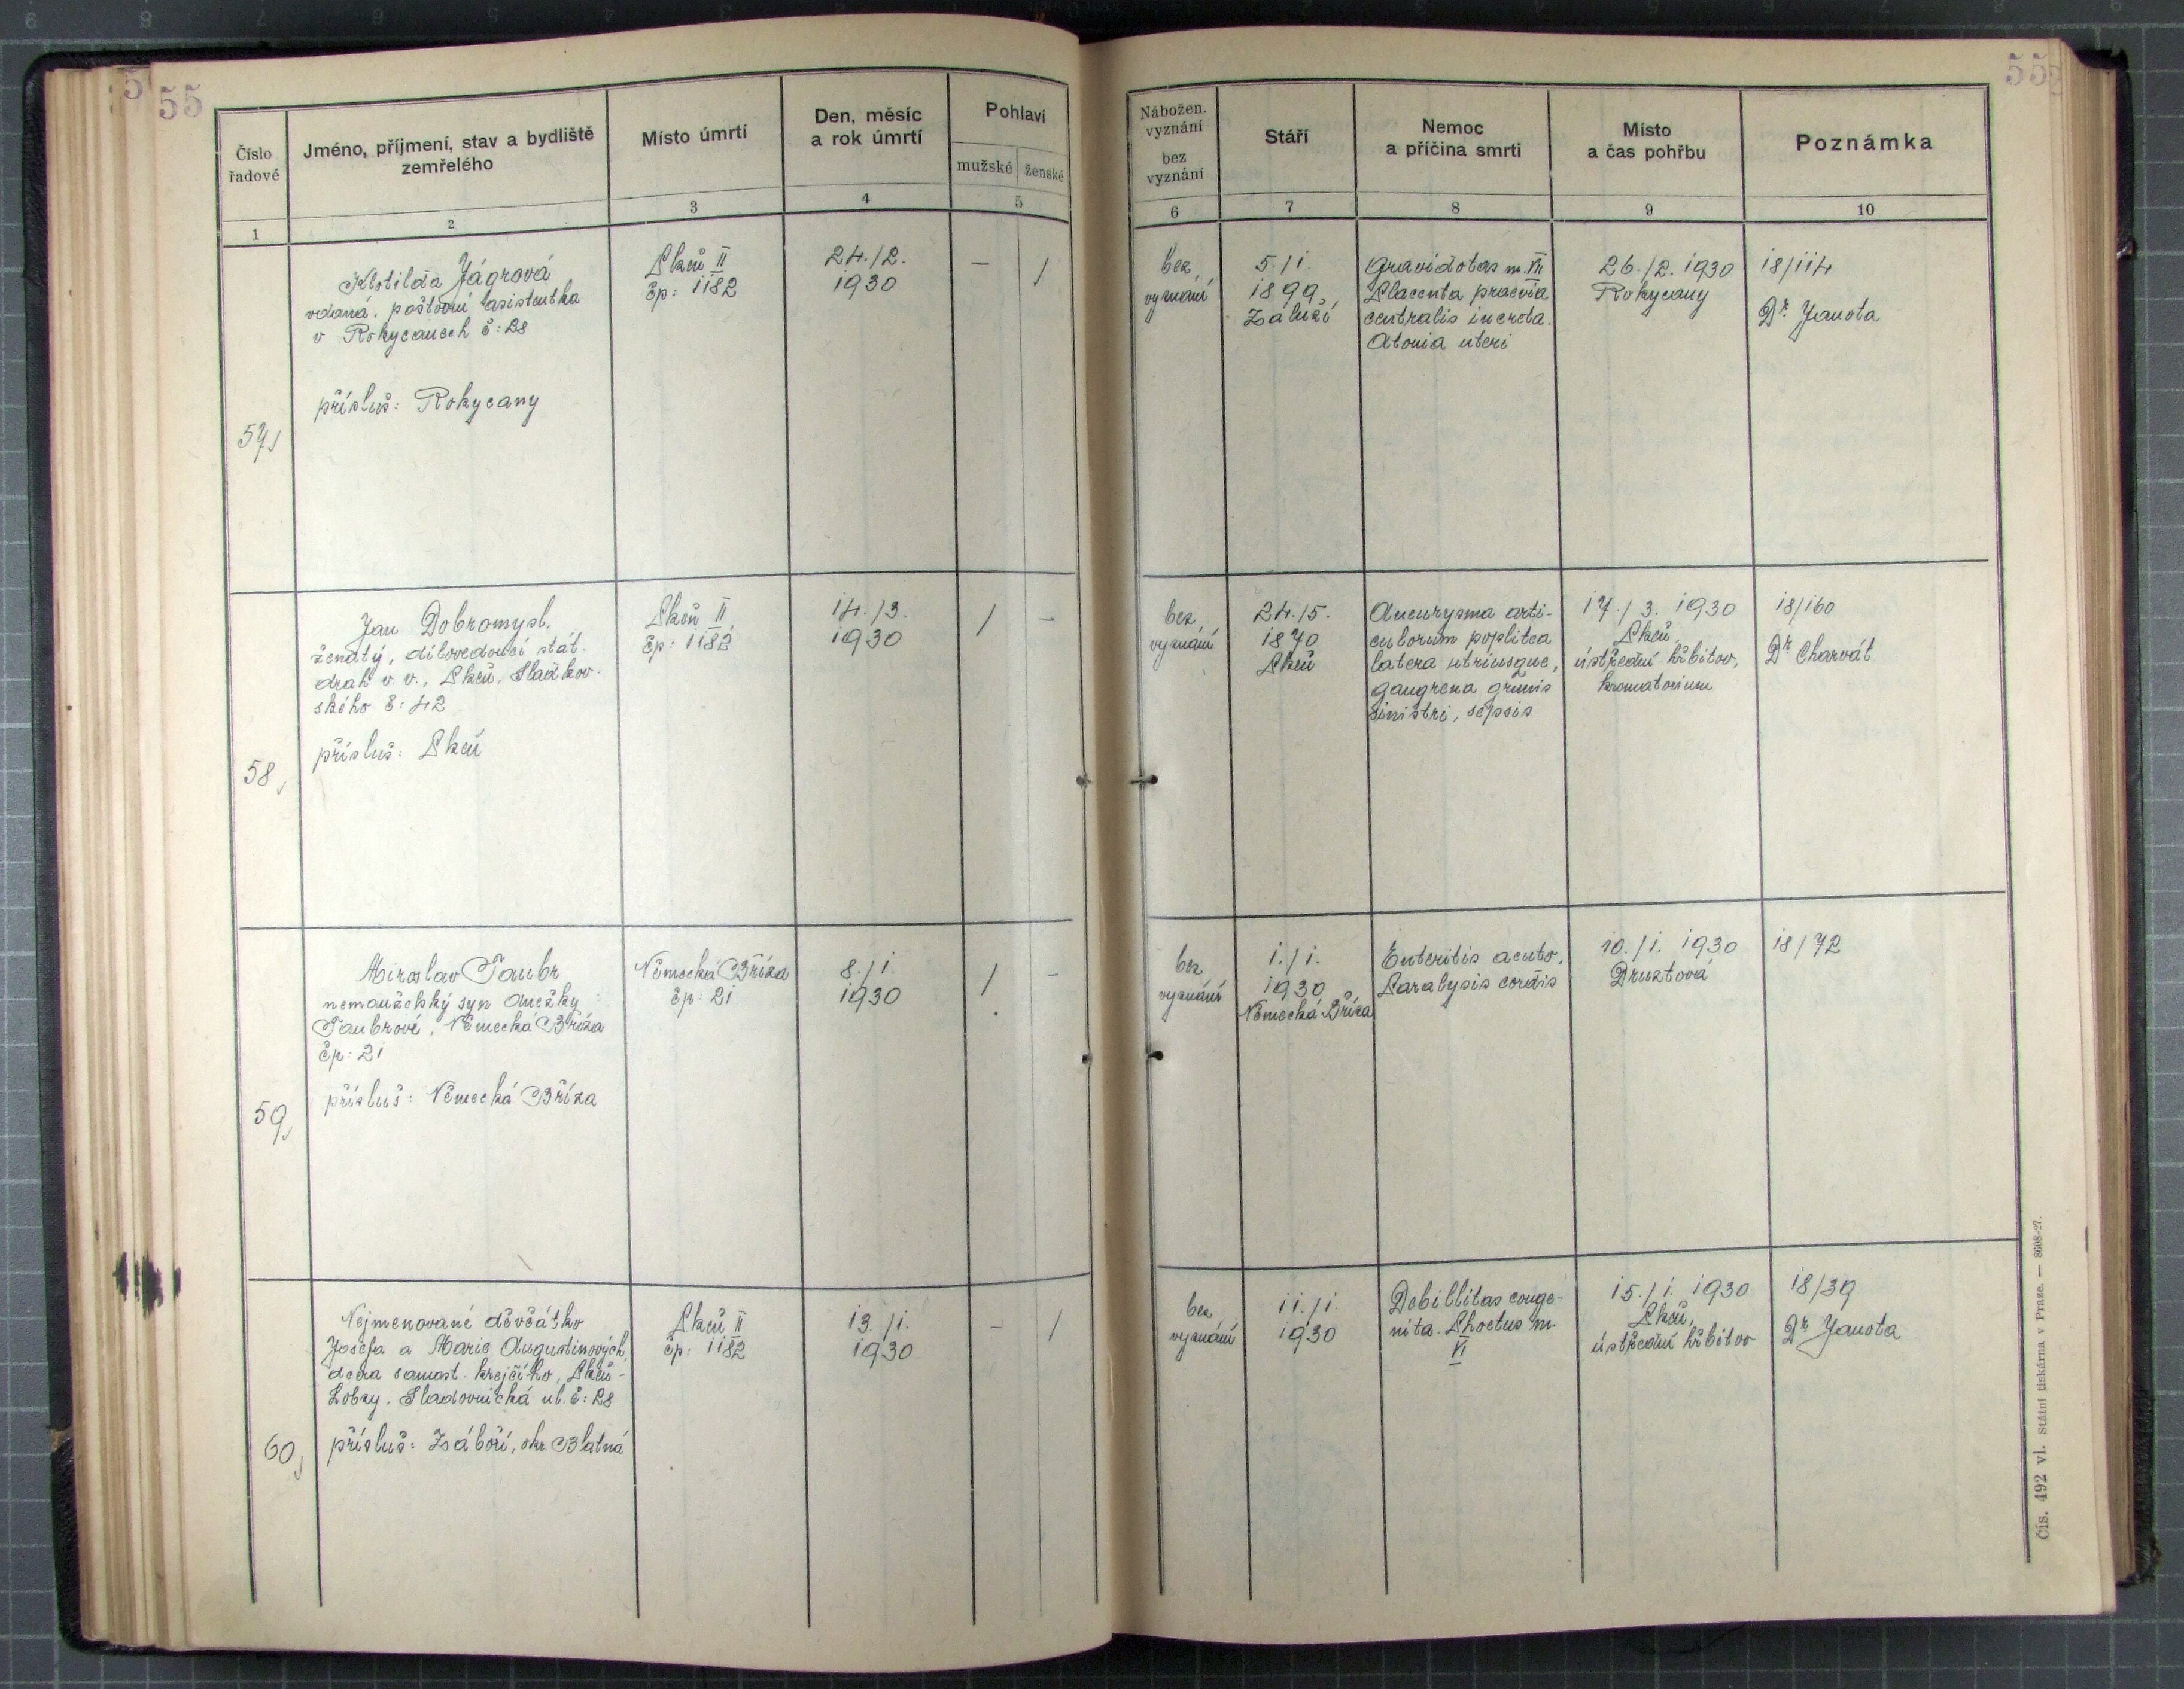 55
55
Číslo řadové
Jméno, příjmení, stav a bydliště zemřelého
Místo úmrtí
Den, měsíc a rok úmrtí
Pohlavi
mužské
ženské
1
2
3
4
5
Nábožen. vyznání
bez vyznání
Stáří
Nemoc a příčina smrti
Místo a čas pohřbu
Poznámka
6
7
8
9
10
57
Klotilda Jágrová
vdaná, poštovní asistentka
v Rokycanech č: 28
přísluš: Rokycany
Plzeň II
čp: 1182
24./2.
1930
—
/
bez
vyznání
5./1.
1899
Záluží
Graviditas m. VII
Placenta praevia
centralis increta.
Atonia uteri
26./2. 1930
Rokycany
18/114
Dr. Janota
58
Jan Dobromysl.
ženatý, dílovedoucí stát.
drah v. v., Plzeň, Sladkov-
ského č: 42
přísluš: Plzeň
Plzeň II
čp: 1182
14./3.
1930
/
-
bez
vyznání
24./5.
1870
Plzeň
Aneurysma arti-
culorum poplitea
latera utriusque,
gangrena cruris
sinistri, sepsis
17./3. 1930
Plzeň
ústřední hřbitov,
krematorium
18/160
Dr Charvát
59
Miroslav Taubr
nemanželský syn Anežky
Taubrové, Německá Bříza
čp: 21
přísluš: Německá Bříza
Německá Bříza
čp: 21
8./1.
1930
/
-
bez
vyznání
1./1.
1930
Německá Bříza
Enteritis acuta.
Paralysis cordis
10./1. 1930
Druztová
18/72
60
Nejmenované děvčátko
Josefa a Marie Augustinových,
dcera samost. krejčího, Plzeň-
Lobzy. Sladovnická ul. č: 28
přísluš: Záboří, okr. Blatná
Plzeň II
čp: 1182
13./1.
1930
-
/
bez
vyznání
11./1.
1930
Debillitas conge-
nita. Phoetus m
VI
15./1. 1930
Plzeň,
ústřední hřbitov
18/39
Dr Janota
Čís. 492 vl. státní tiskárna v Praze. — 8608-27.